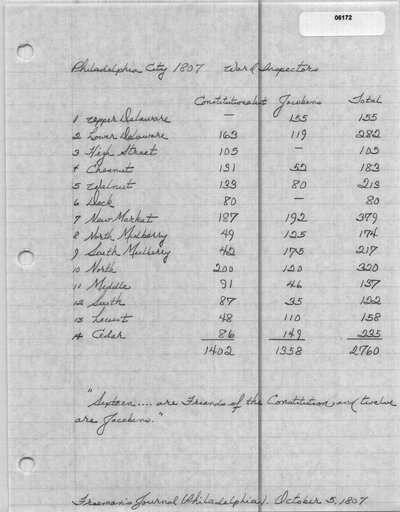 06172
Philadelphia City 1807 Ward Inspectors
Constitutionalist Jacobins Total
1 Upper Delaware — 155 155
2 Lower Delaware 163 119 282
3 High Street 105 — 105
4 Chesnut 131 52 183
5 Walnut 133 80 213
6 Dock 80 — 80
7 New Market 187 192 379
8 North Mulberry 49 125 174
9 South Mulberry 42 175 217
10 North 200 120 320
11 Middle 91 46 137
12 South 87 35 122
13 Locust 48 110 158
14 Cedar 86 149 235
1402 1358 2760
"Sixteen .... are Friends of the Constitution and twelve
are Jacobins."
Freeman's Journal (Philadelphia). October 5, 1807